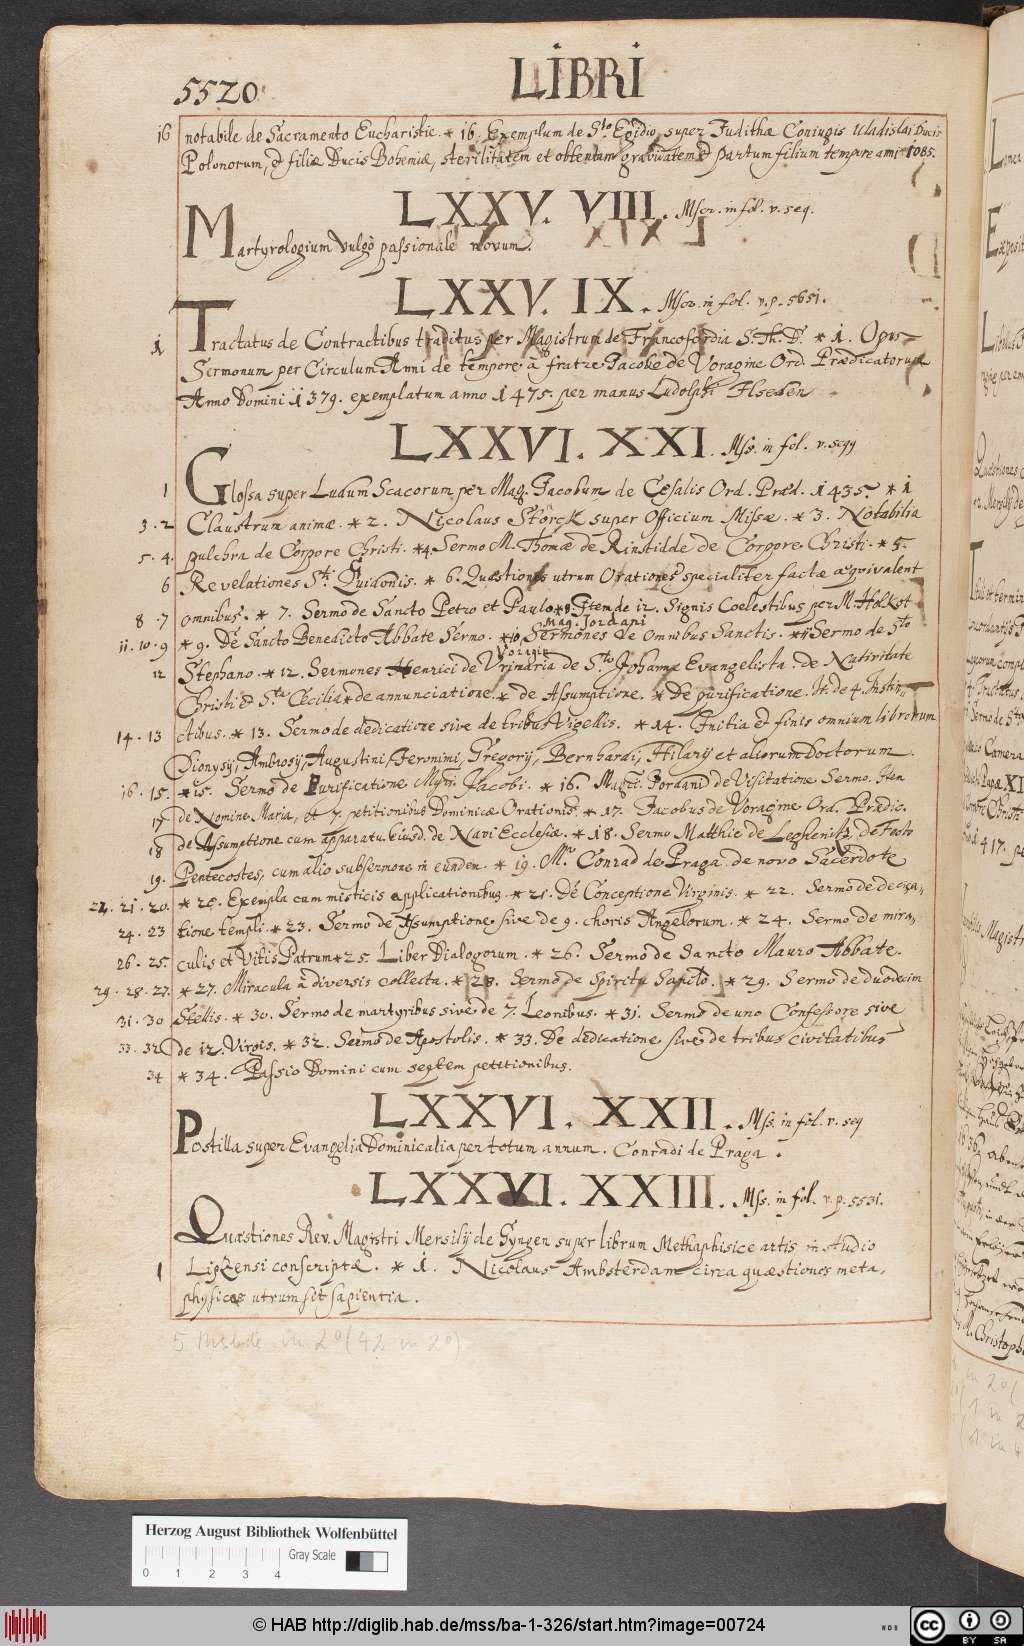 5520
LIBRI
16 notabile de Sacramento Eucharistie * 16. Exemplum de Sto Egidio super Judithæ Coniugis Uladislai Ducis
Polonorum, et filiæ Ducis Bohemiæ, sterilitatem et obtentam gravitatem et partum filium tempore anni 1085.
LXXV. VIII. Mscr. in fol. v. seq.
Martyrologium vulgò passionale novum.
LXXV. IX. Mscr. in fol. v. p. 5651.
1 Tractatus de Contractibus traditus per Magistrum de Francofordia S. Th. D. * 1. Opus
Sermonum per Circulum Anni de tempore à fratre Jacobo de Voragine Ord. Prædicatorum
Anno Domini 1379. exemplatum anno 1475. per manus Ludolphi Ilseben
LXXVI. XXI. Mss. in fol. v. seqq
1 Glossa super Ludum Scacorum per Mag. Jacobum de Cesalis Ord. Præd. 1435. * 1
3. 2 Claustrum animæ. * 2. Nicolaus Störck super Officium Missæ. * 3. Notabilia
5. 4. pulchra de Corpore Christi. *4. Sermo M. Thomæ de Rinstilde de Corpore Christi. * 5.
6 Revelationes Sti Guidonis. * 6. Quæstiones utrum Orationes specialiter factæ æquivalent
8. 7 omnibus. * 7. Sermo de Sancto Petro et Paulo *8. Item de 12. Signis Coelestibus per M. Holkot
Mag. Jordani
11. 10. 9 * 9. De Sancto Benedicto Abbate Sermo. *10. Sermones de omnibus Sanctis. *11 Sermo de Sto
Voragin
12 Stephano. * 12. Sermones Henrici de Vrinaria de Sto Johanne Evangelista. de Nativitate
Christi et Sta Cecilia * de annunciatione. * de Assumptione. * De purificatione. It. de 4. Instin-
14. 13 ctibus. * 13. Sermo de dedicatione sive de tribus Vigellis. * 14. Initia et finis omnium librorum
Dionysij, Ambrosij, Augustini, Jeronimi, Gregorij, Bernhardi, Hilarij et aliorum Doctorum
16. 15. *15. Sermo de Purificatione Mgri. Jacobi. * 16. Magri. Jordani de Visitatione Sermo. Item
17 de Nomine Maria, et 7. petitionibus Dominicæ Orationis. * 17. Jacobus de Voragine Ord. Prædic.
18 de Assumptione cum apparatu. Eiusd. de Navi Ecclesiæ. * 18. Sermo Matthie de Leghenitz, de Festo
19. Pentecostes, cum alio subsermone in eundem. * 19. Mr. Conrad de Praga de novo Sacerdote
22. 21. 20. * 20. Exempla cum misticis applicationibus. * 21. De Conceptione Virginis. * 22. Sermo de dedica-
24. 23 tione templi. * 23. Sermo de Assumptione sive de 9. choris Angelorum. * 24. Sermo de mira-
26. 25. culis et Vitis Patrum *25. Liber Dialogorum. * 26. Sermo de Sancto Mauro Abbate.
29. 28. 27. * 27. Miracula à diversis collecta. * 28. Sermo de Spiritu Sancto. * 29. Sermo de duodecim
31. 30 Stellis. * 30. Sermo de martyribus sive de 7. Leonibus. * 31. Sermo de uno Confessore sive
33. 32 de 12. Virgis. * 32. Sermo de Apostolis. * 33. De dedicatione sive de tribus civitatibus
34 * 34. Passio Domini cum septem petitionibus.
LXXVI. XXII. Mss. in fol. v. seq
Postilla super Evangelia Dominicalia per totum annum. Conradi de Praga.
LXXVI. XXIII. Mss. in fol. v. p. 5531.
Quæstiones Rev. Magistri Mersilij de Gyngen super librum Methaphisice artis in studio
1 Lipzensi conscriptæ. * 1. Nicolaus Ambsterdam circa quæstiones meta-
physices utrum sit sapientia.
Herzog August Bibliothek Wolfenbüttel
Gray Scale
0 1 2 3 4
© HAB http://diglib.hab.de/mss/ba-1-326/start.htm?image=00724
cc BY SA